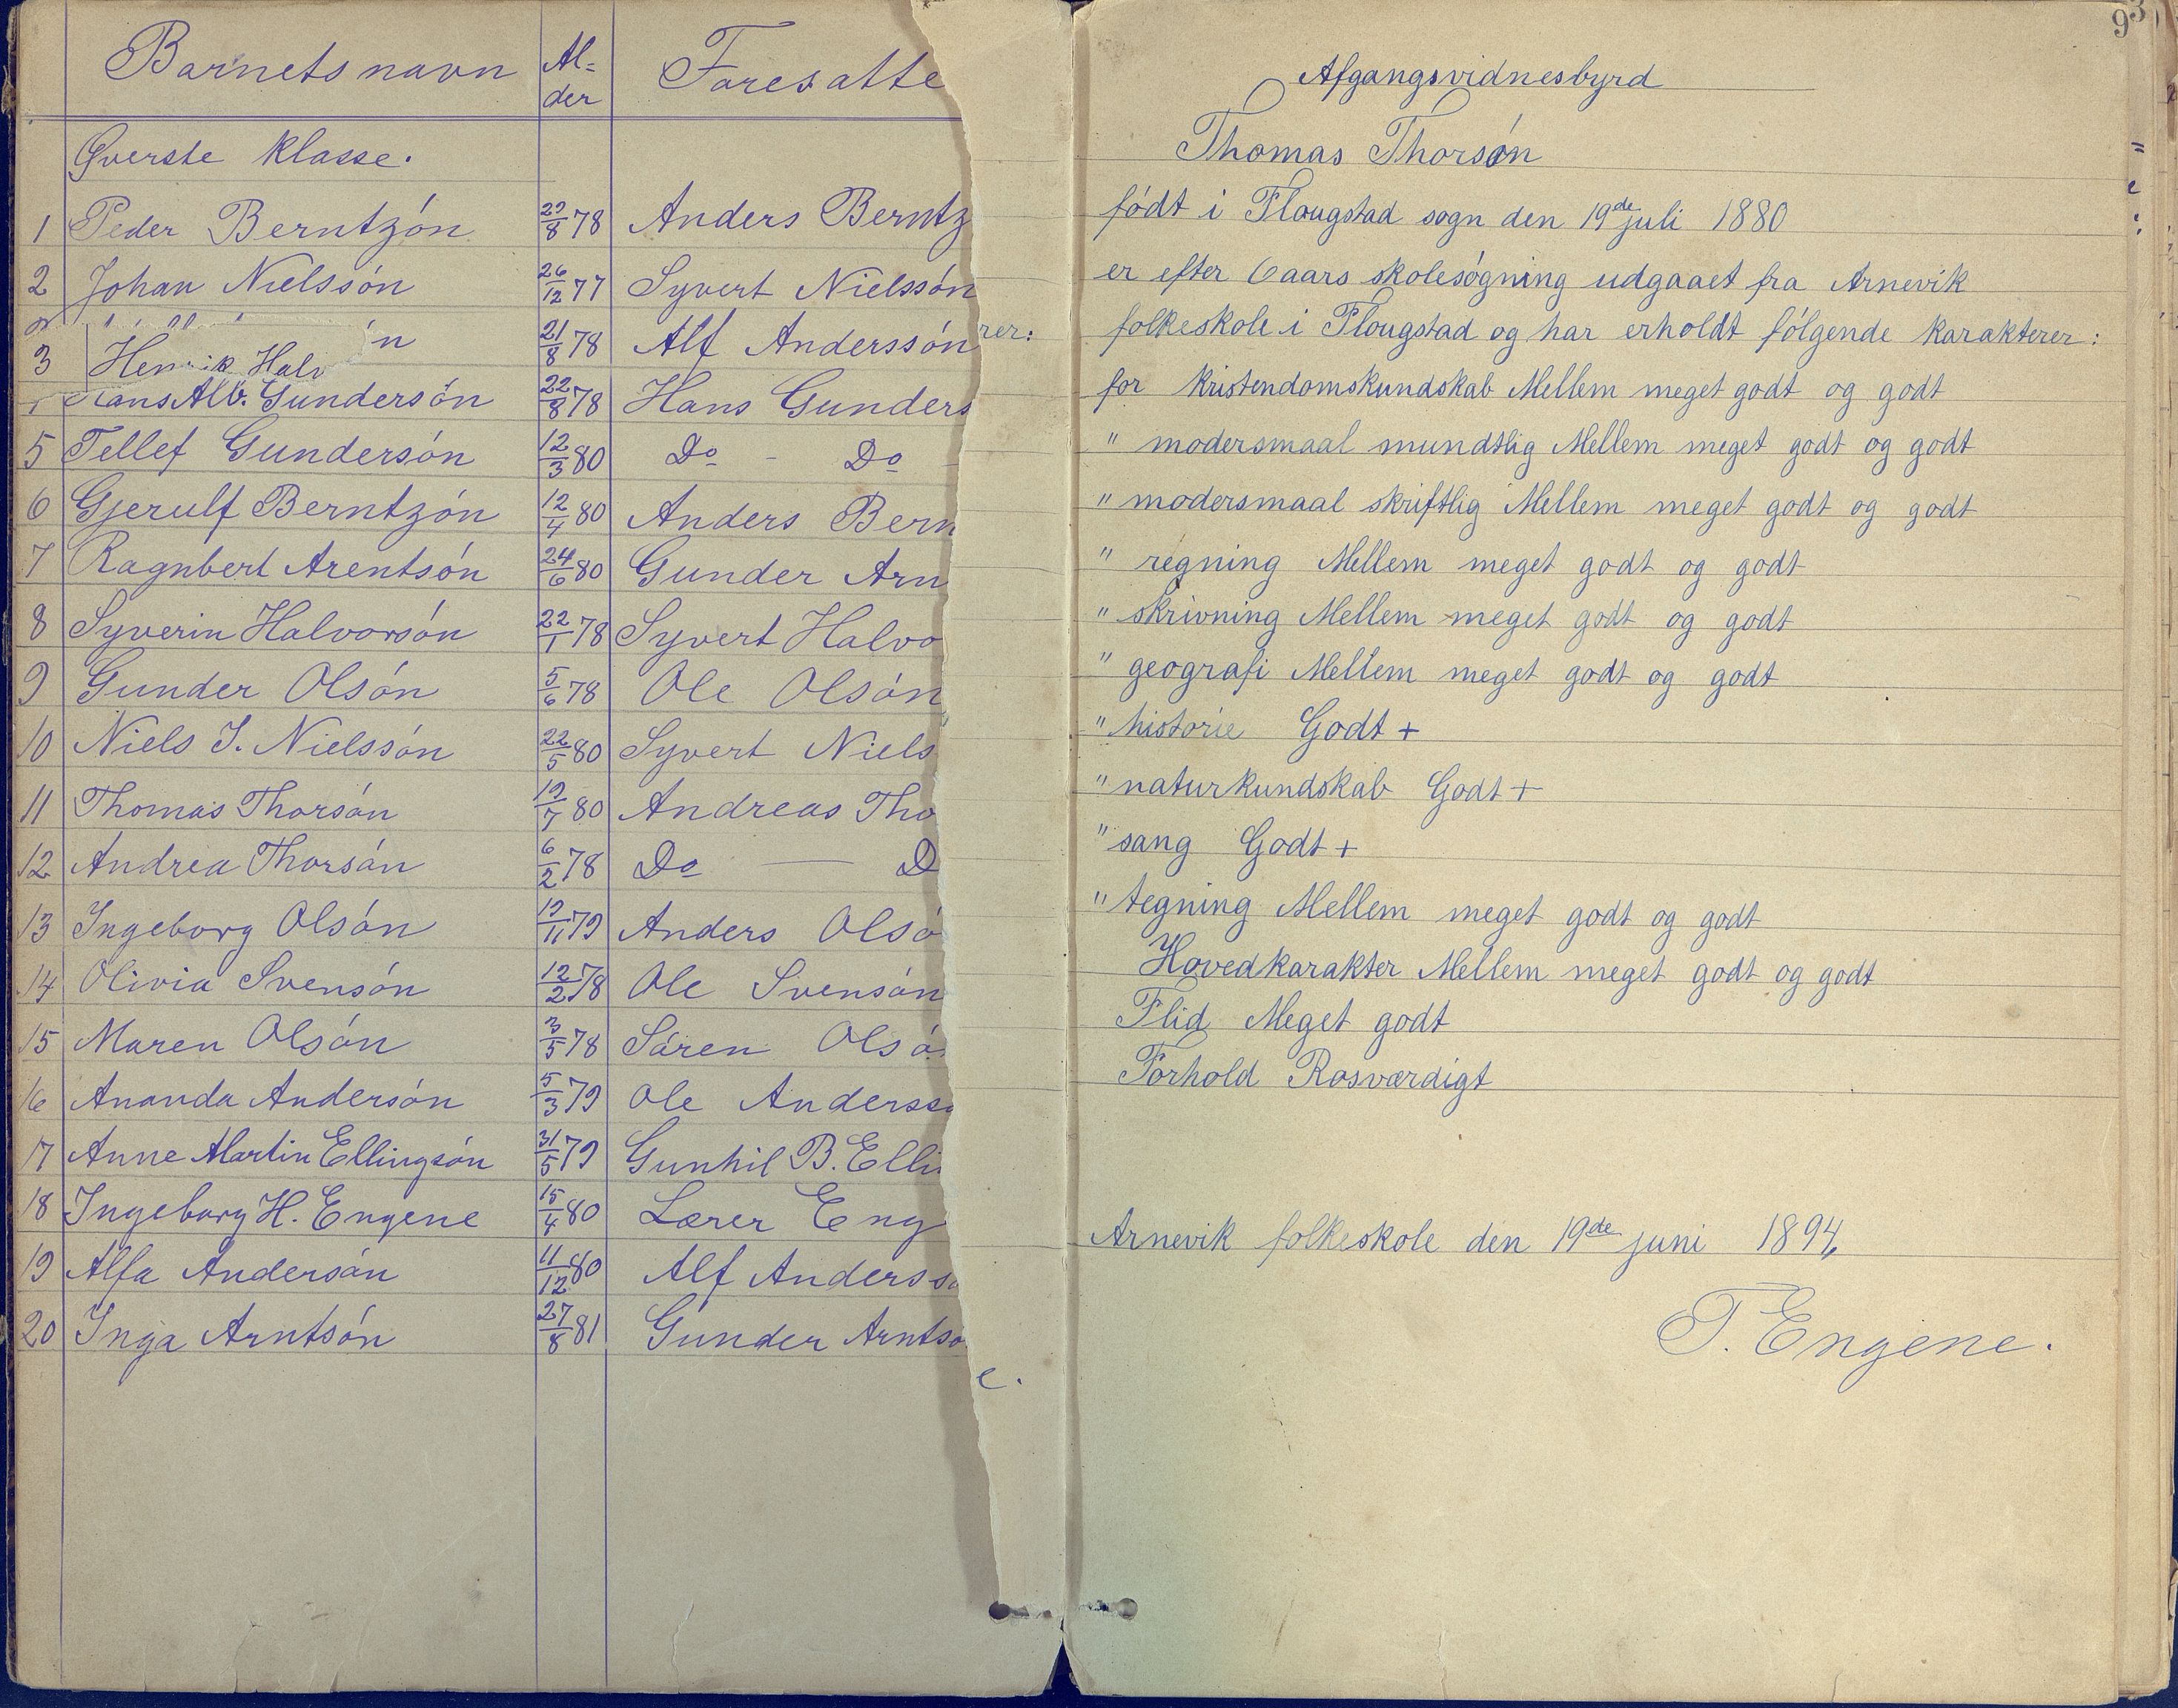 Barnets navn Al-der Foresatte
Øverste klasse.
1 Peder Berntzón 29/8 78 Anders Berntz
2 Johan Nielssón 26/12 77 Syvert Nielssón
3 Henrik Halv n 21/8 78 Alf Anderssón
Hans Alb. Gundersón 22/8 78 Hans Gunders
5 Tellef Gundersón 12/3 80 Do - Do -
6 Gjerulf Berntzón 12/4 80 Anders Bern
7 Ragnbert Arentsón 24/6 80 Gunder Arn
8 Syverin Halvorsón 22/1 78 Syvert Halvo
9 Gunder Olsón 5/6 78 Ole Olsón
10 Niels S. Nielssón 22/5 80 Syvert Niels
11 Thomas Thorsón 19/7 80 Andreas Tho
12 Andrea Thorsón 6/2 78 Do — D
13 Ingeborg Olsón 19/11 79 Anders Olsó
14 Olivia Svensón 12/2 78 Ole Svensón
15 Maren Olsón 3/5 78 Sóren Olsó
16 Ananda Andersón 5/3 79 Ole Anderssó
17 Anne Martin Ellingsón 31/5 79 Gunhil B. Elli
18 Ingeborg H. Engene 15/4 80 Lærer Eng
19 Alfa Andersón 11/12 80 Alf Andersso
20 Inga Arntsón 27/8 81 Gunder Arntso
rer:
e.
93
Afgangsvidnesbyrd
Thomas Thorsón
fódt i Flougstad sogn den 19de juli 1880
er efter 6 aars skolesógning udgaaet fra Arnevik
folkeskole i Flougstad og har erholdt fólgende karakterer:
for kristendomskundskab Mellem meget godt og godt
" modersmaal mundtlig Mellem meget godt og godt
" modersmaal skriftlig Mellem meget godt og godt
" regning Mellem meget godt og godt
" skrivning Mellem meget godt og godt
" geografi Mellem meget godt og godt
" historie Godt +
" naturkundskab Godt +
" sang Godt +
" tegning Mellem meget godt og godt
Hovedkarakter Mellem meget godt og godt
Flid Meget godt
Forhold Rosværdigt
Arnevik folkeskole den 19de juni 1894.
T. Engene.